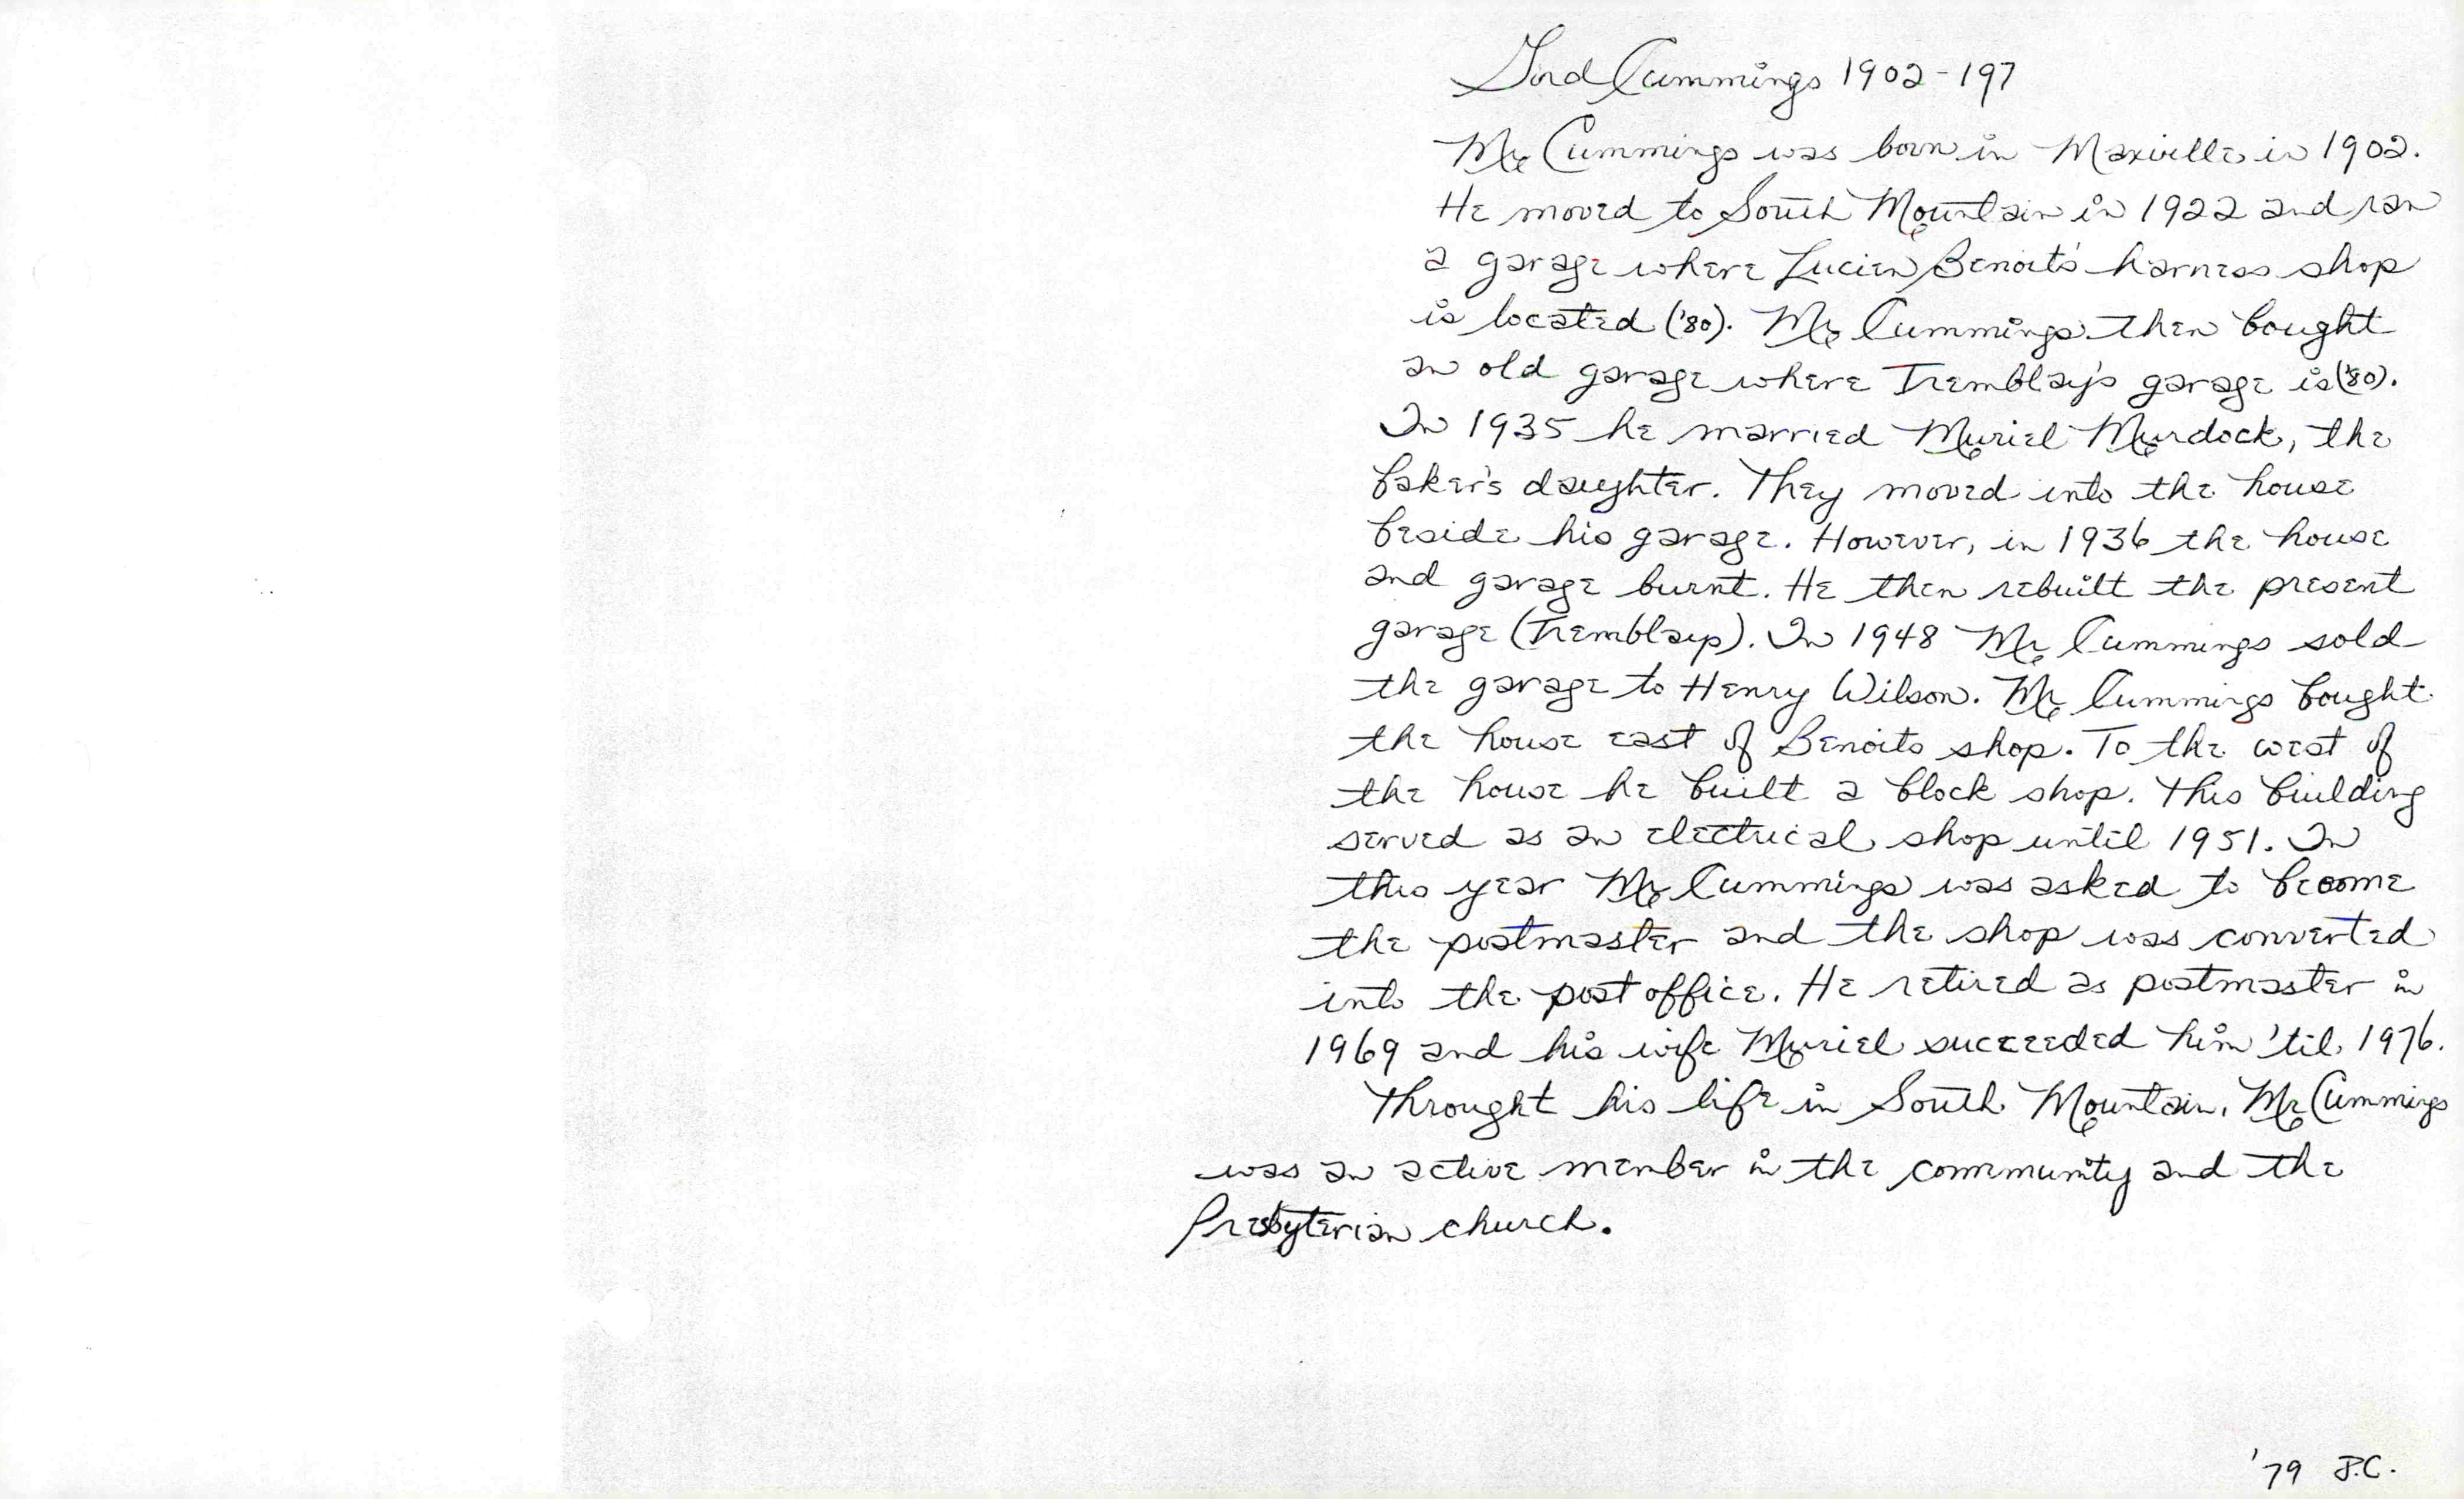 Gord Cummings 1902-197
Mr Cummings was born in Maxville in 1902.
He moved to South Mountain in 1922 and ran
a garage where Lucien Benoit's harness shop
is located ('80). Mr Cummings then bought
an old garage where Tremblay's garage is ('80).
In 1935 he married Muriel Murdock, the
baker's daughter. They moved into the house
beside his garage. However, in 1936 the house
and garage burnt. He then rebuilt the present
garage (Tremblays). In 1948 Mr Cummings sold
the garage to Henry Wilson. Mr Cummings bought
the house east of Benoits shop. To the west of
the house he built a block shop. This building
served as an electrical shop until 1951. In
this year Mr Cummings was asked to become
the postmaster and the shop was converted
into the post office. He retired as postmaster in
1969 and his wife Muriel succeeded him 'til 1976.
Throught his life in South Mountain, Mr Cummings
was an active member in the community and the
Presbyterian church.
'79 J.C.